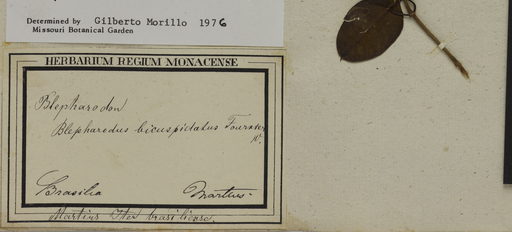 Determined by Gilberto Morillo 1976
Missouri Botanical Garden
HERBARIUM REGIUM MONACENSE
Blepharodon
Blepharodus bicuspidatus Fournier
Brasilia Martius
Martius Iter brasiliense.